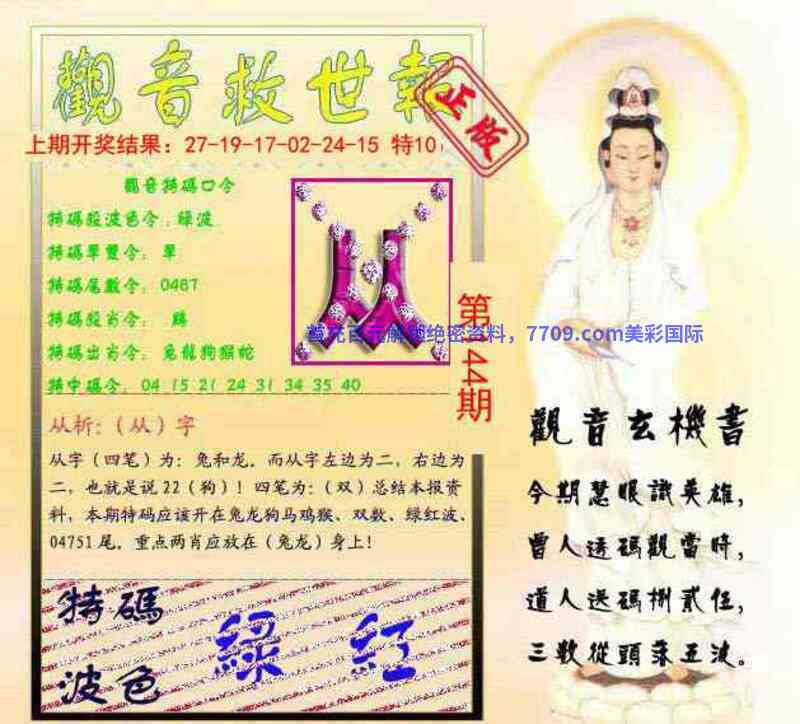 觀音救世報
正版
上期开奖结果：27-19-17-02-24-15 特10
觀音特碼口令
特碼段波色令：绿波
特碼單雙令：單
特碼尾數令：0487
特碼出肖令：兔龍狗猴蛇
特中碼令：04 15 21 24 31 34 35 40
从
第44期
7709.com美彩国际
从析:（从）字
从字（四笔）为：兔和龙。而从字左边为二，右边为
二，也就是说22（狗）！四笔为：（双）总结本报资
料，本期特码应该开在兔龙狗马鸡猴、双数、绿红波、
04751尾。重点两肖应放在（兔龙）身上！
特碼
波色
綠 紅
觀音玄機書
今期慧眼識英雄，
曾人透碼觀當時，
道人送碼捌貳伍，
三數從頭落五波。